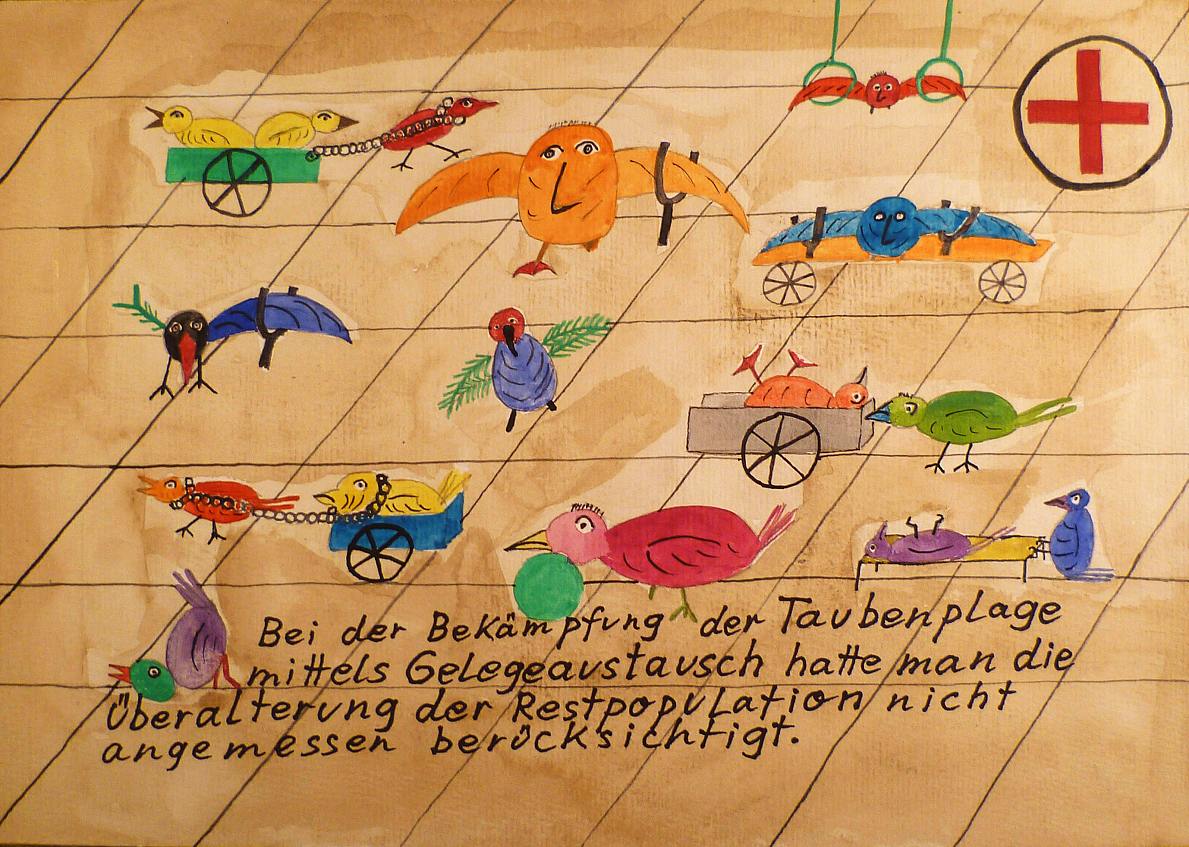 Bei der Bekämpfung der Taubenplage
mittels Gelegeaustausch hatte man die
Überalterung der Restpopulation nicht
angemessen berücksichtigt.